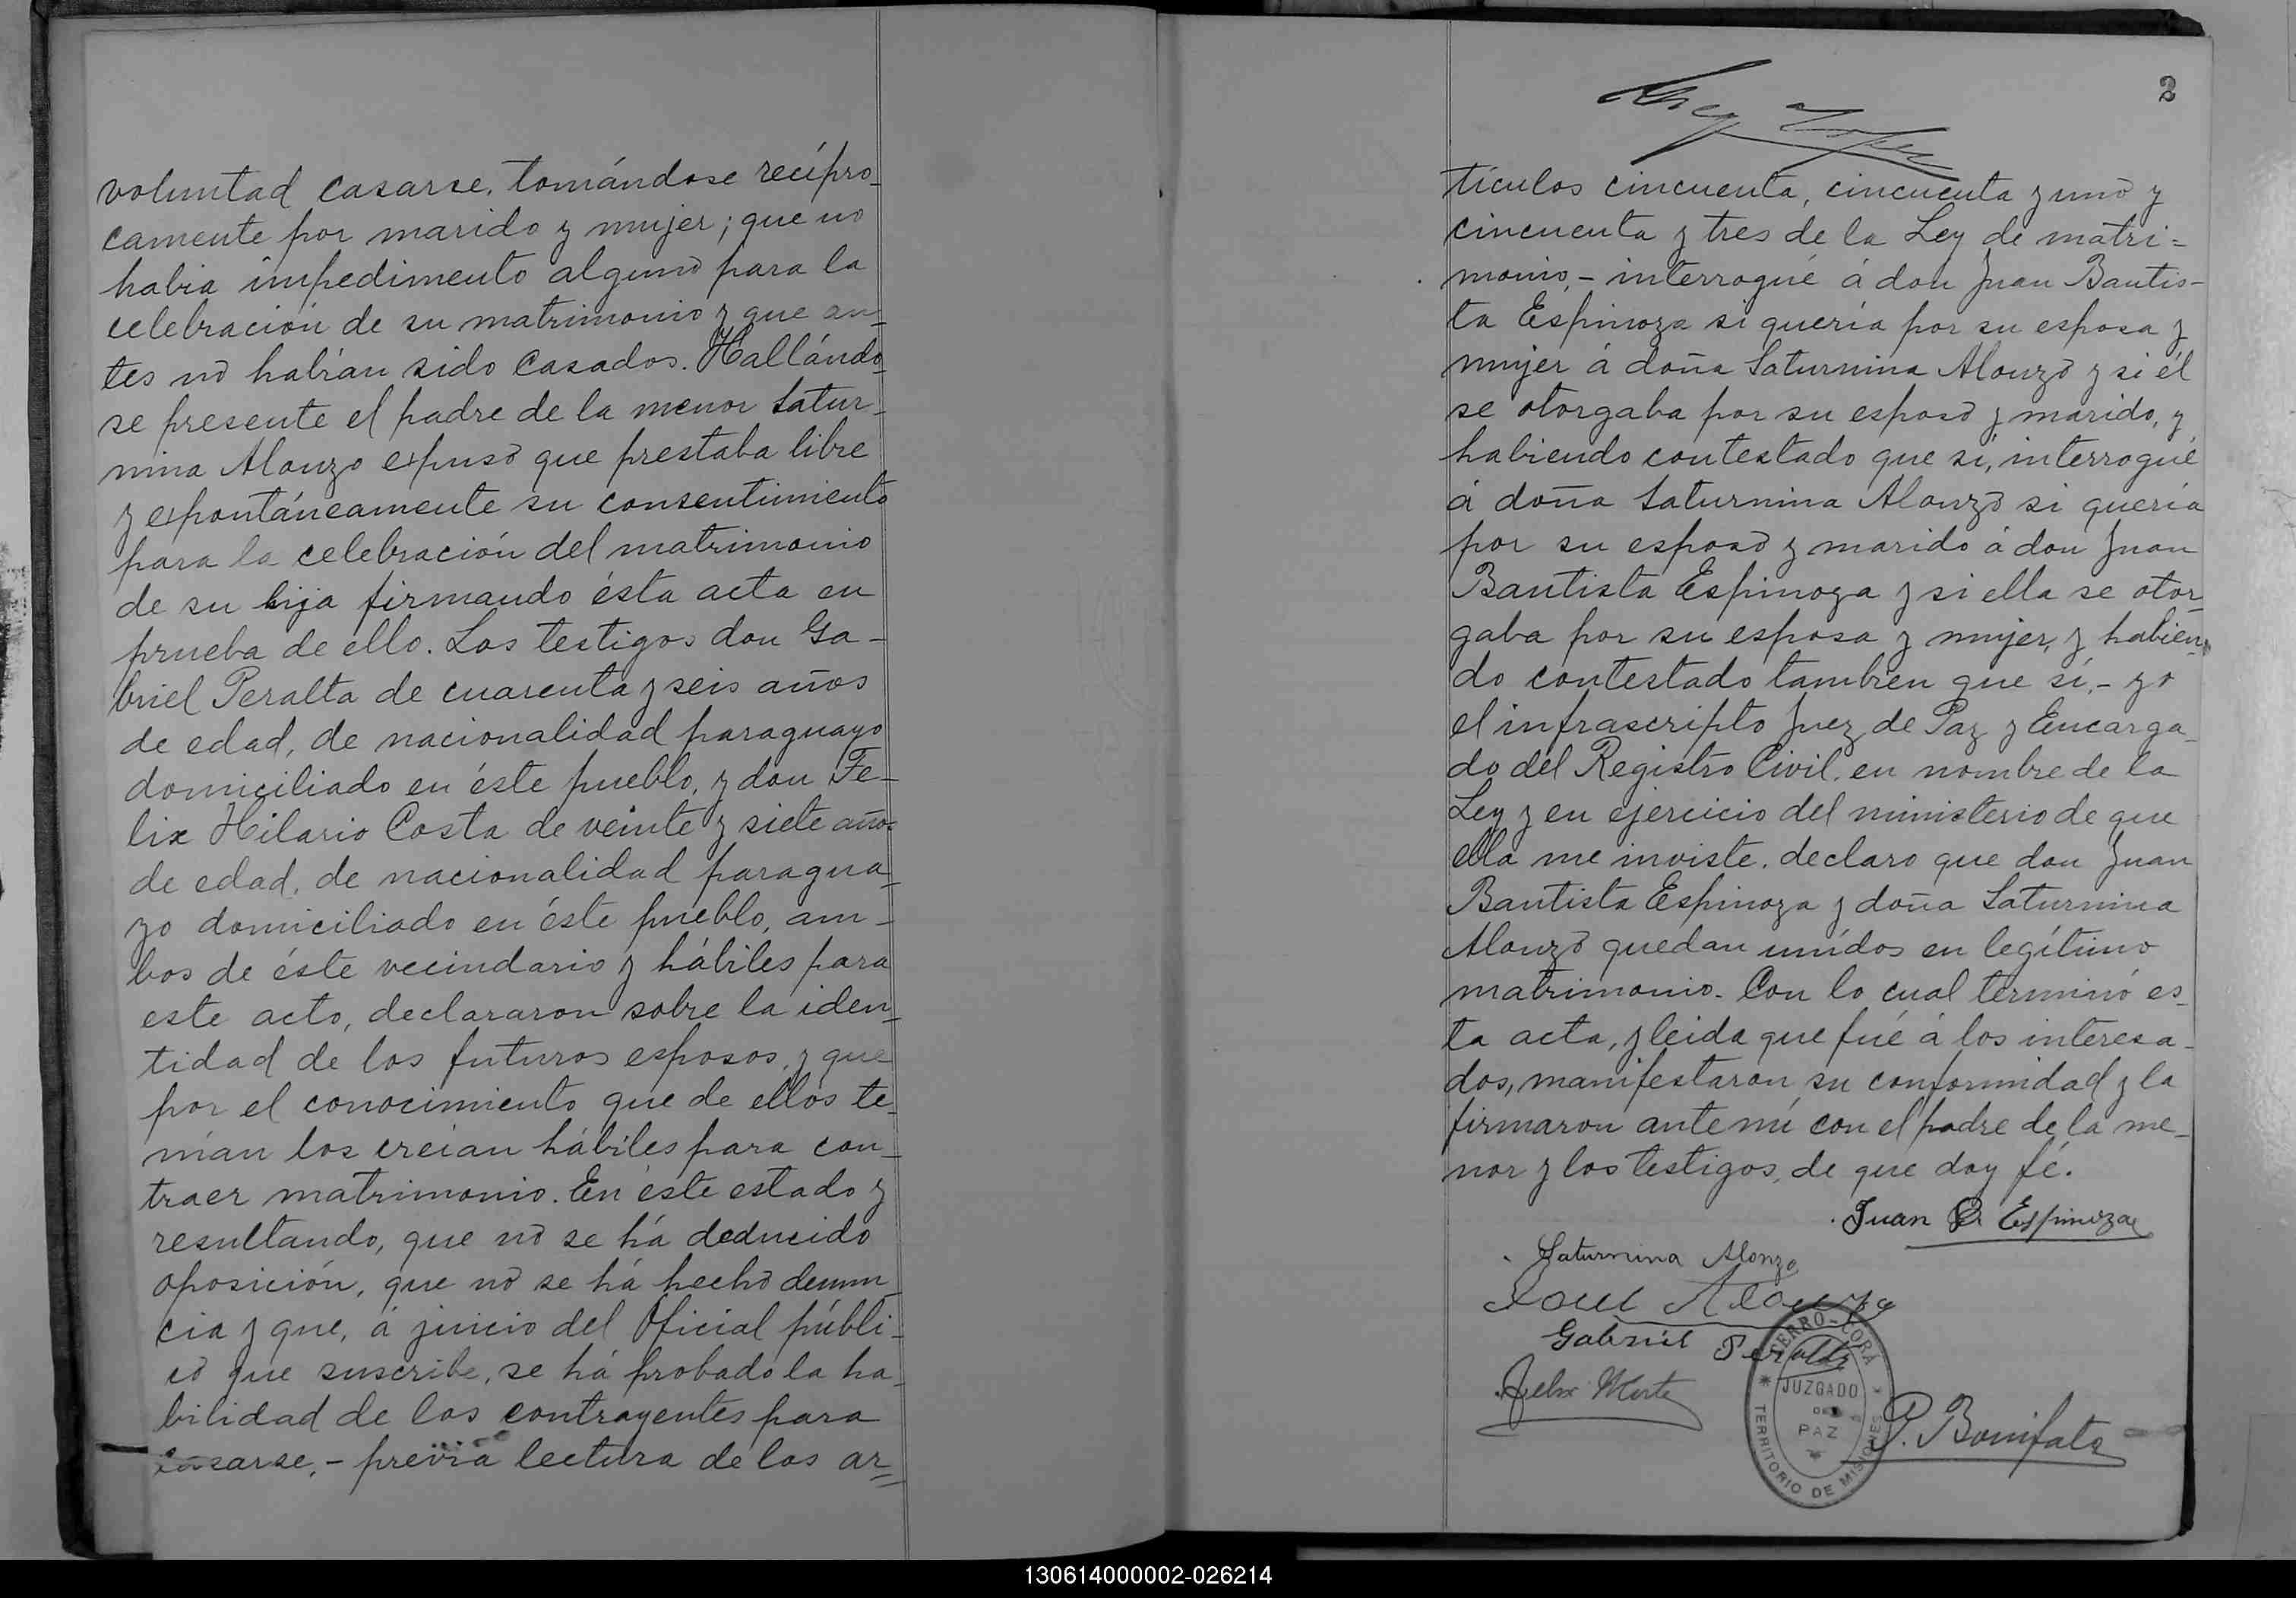 voluntad casarse, tomándose recípro-
camente por marido y mujer; que no
habia impedimento alguno para la
celebración de su matrimonio y que an-
tes no habían sido casados. Hallándo-
se presente el padre de la menor Satur-
nina Alonzo expuso que prestaba libre
y expontáneamente su consentimiento
para la celebración del matrimonio
de su hija firmando ésta acta en
prueba de ello. Los testigos don Ga-
briel Peralta de cuarenta y seis años
de edad, de nacionalidad paraguayo
domiciliado en éste pueblo, y don Fe-
lix Hilario Costa de veinte y siete años
de edad, de nacionalidad paragua-
yo domiciliado en éste pueblo, am-
bos de éste vecindario y hábiles para
este acto, declararon sobre la iden-
tidad de los futuros esposos, y que
por el conocimiento que de ellos te-
nían los creían hábiles para con-
traer matrimonio. En éste estado y
resultando, que no se há deducido
oposición, que no se há hecho denun-
cia y que, á juicio del Oficial públi-
co que suscribe, se há probado la ha-
bilidad de los contrayentes para
casarse, - previa lectura de los ar=
2
tículos cincuenta, cincuenta y uno y
cincuenta y tres de la Ley de matri=
monio, - interrogué á don Juan Bautis-
ta Espinoza si quería por su esposa y
mujer á doña Saturnina Alonzo y si él
se otorgaba por su esposo y marido, y
habiendo contestado que sí, interrogué
á doña Saturnina Alonzo si quería
por su esposo y marido á don Juan
Bautista Espinoza y si ella se otor-
gaba por su esposa y mujer, y habien-
do contestado tambien que sí, - yo
el infrascripto Juez de Paz y Encarga-
do del Registro Civil, en nombre de la
Ley y en ejercicio del ministerio de que
ella me inviste, declaro que don Juan
Bautista Espinoza y doña Saturnina
Alonzo quedan unidos en legítimo
matrimonio. Con lo cual terminó es-
ta acta, y leida que fué á los interesa-
dos, manifestaron su conformidad y la
firmaron ante mí con el padre de la me-
nor y los testigos, de que doy fé.
Juan B. Espinoza
Saturnina Alonzo
Alonzo
Gabriel Peralta
Felix
P. Bonifato
CERRO-CORÁ
JUZGADO
DE
PAZ
TERRITORIO DE MISIONES
130614000002-026214